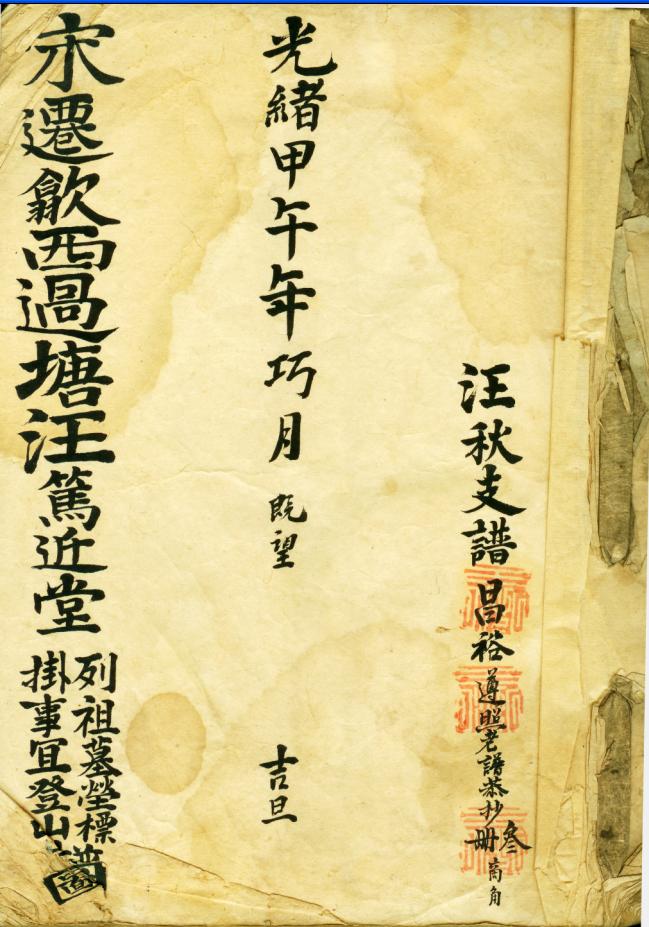 汪秋支譜昌裕遵照老譜恭抄叁冊
商角
光緒甲午年巧月既望
吉旦
宋遷歙西過塘汪篤近堂
列祖墓塋標
掛事宜登山